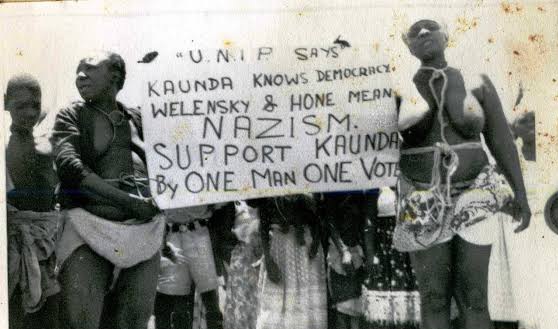 "U.N.I.P. SAYS"
KAUNDA KNOWS DEMOCRACY.
WELENSKY & HONE MEAN
NAZISM.
SUPPORT KAUNDA
By ONE MAN ONE VOTE